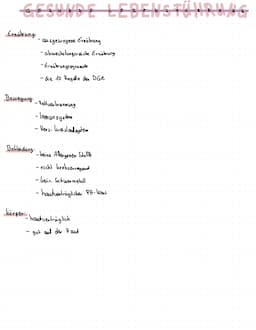 GESUNDE LEBENSFÜHRUNG
Ernährung:
- ausgewogene Ernährung
- abwechslungsreiche Ernährung
- Ernährungspyramide
- die 10 Regeln der DGE
Bewegung:
- Immunsystem
- Herz-Kreislaufsystem
Bekleidung:
- keine Allergenen Stoffe
- nicht krebserregend
- kein Schwermetall
- hautverträglicher PH-Wert
Körper:
- hautverträglich
- gut auf der Haut